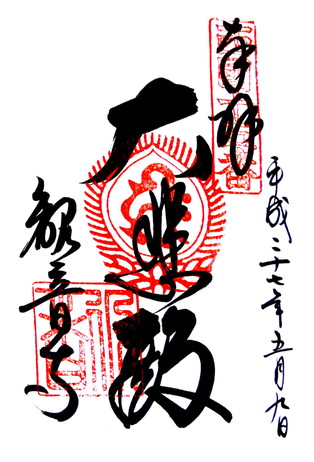 奉拝
平成二十七年五月九日
大悲殿
観音寺